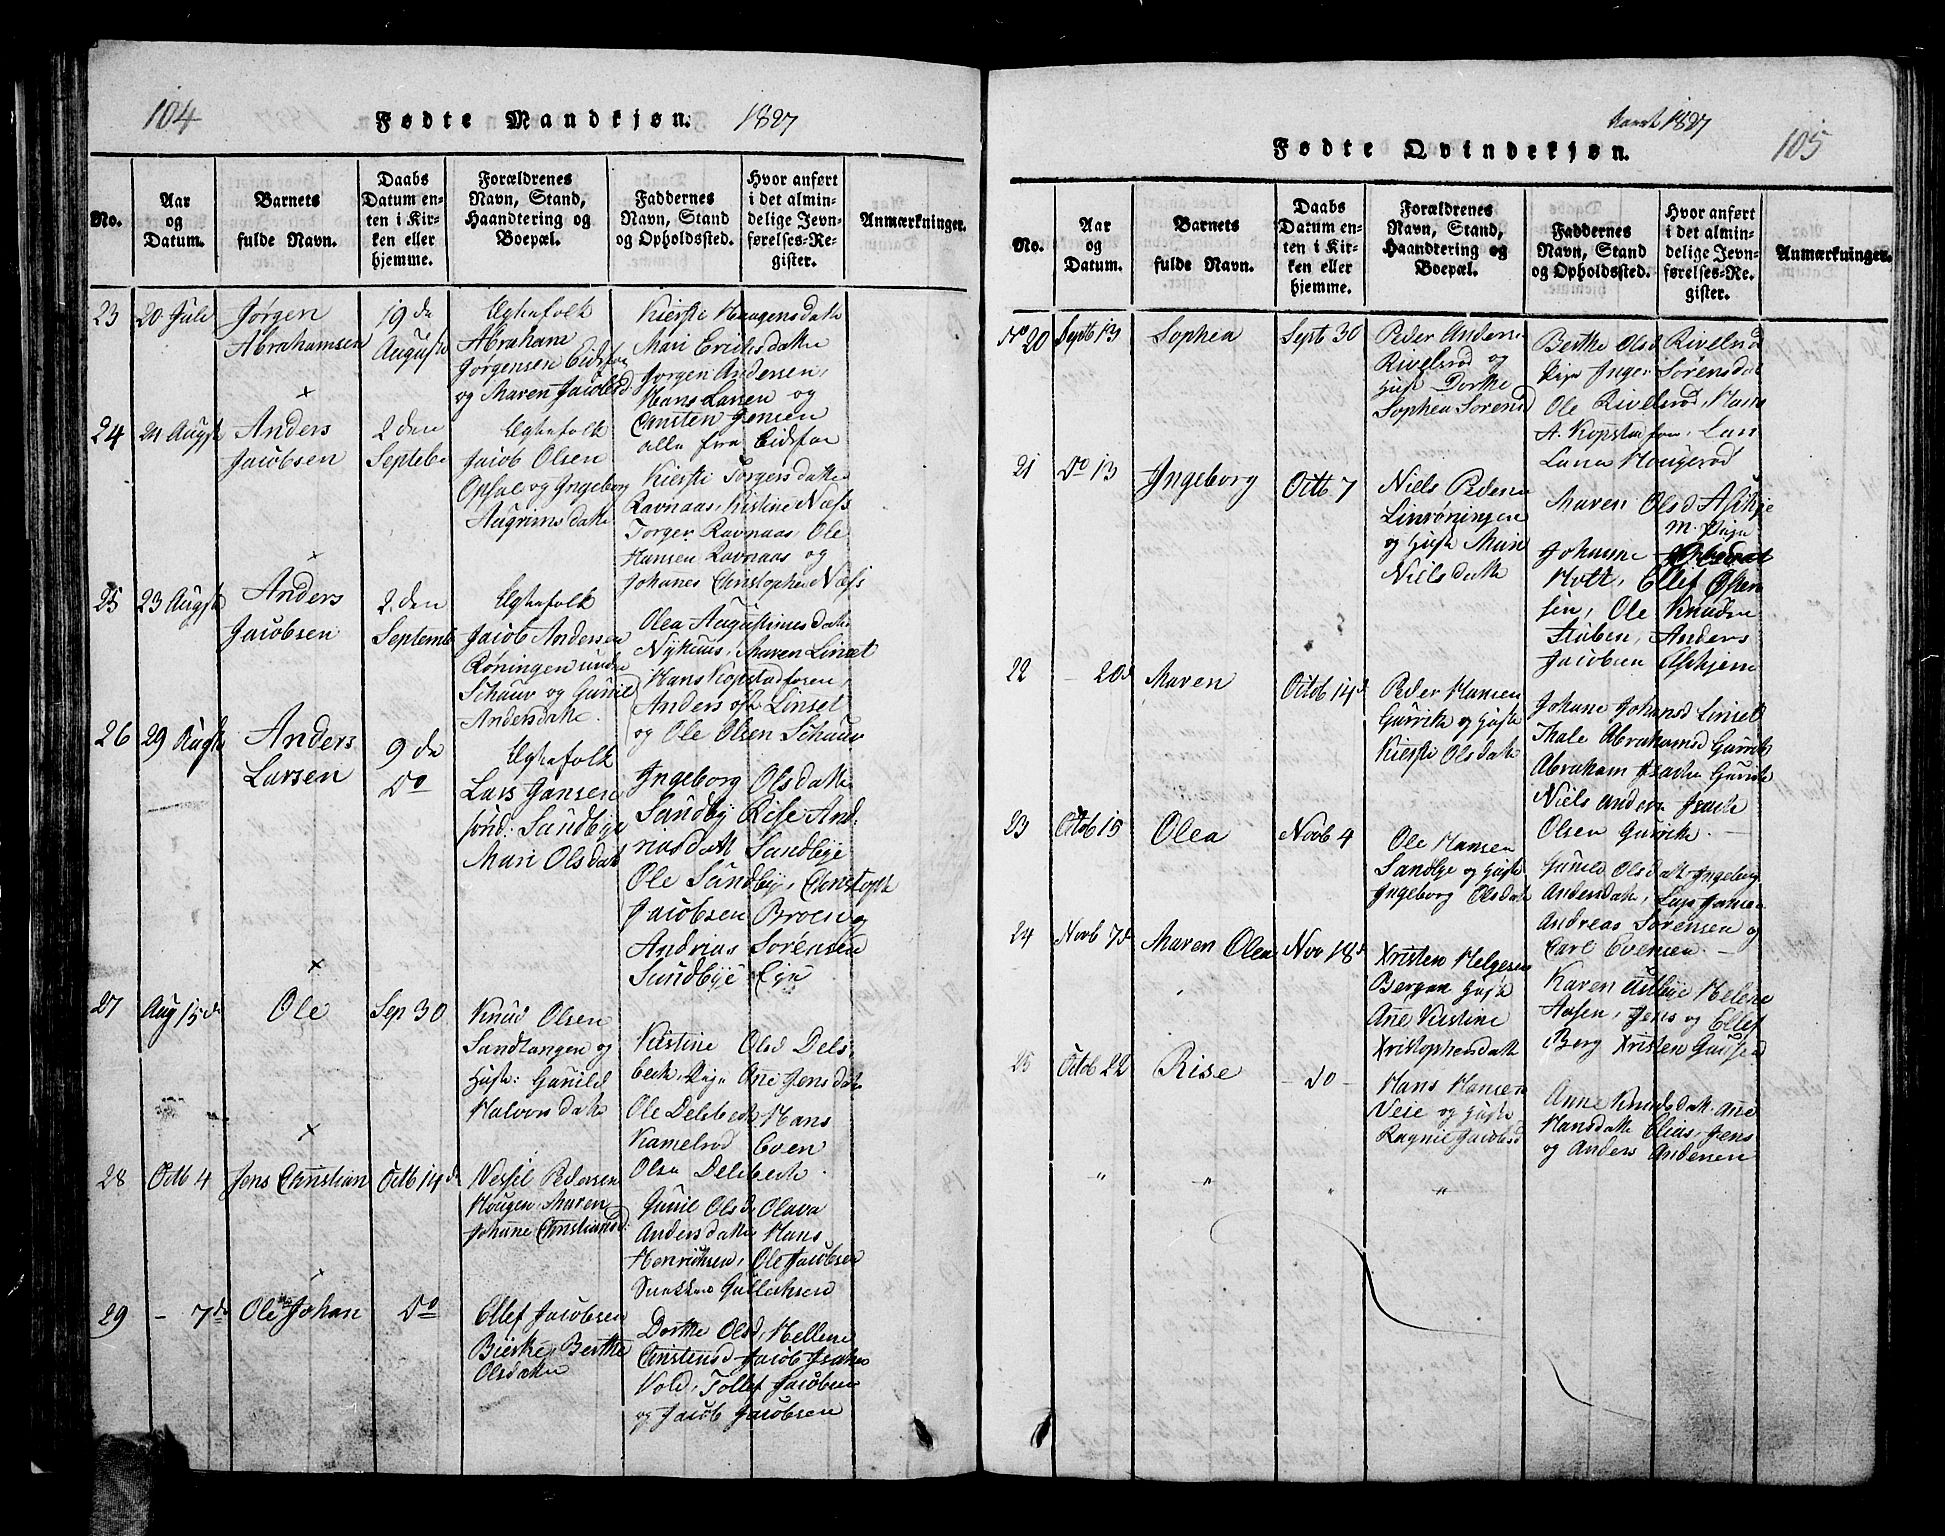 104
Fødte Mandkjøn.
1827
No.
Aar
og
Datum.
Barnets
fulde Navn.
Daabs
Datum en-
ten i Kir-
ken eller
hjemme.
Forældrenes
Navn, Stand,
Haandtering og
Boepæl.
Faddernes
Navn, Stand
og Opholdssted.
Hvor anført
i det almin-
delige Jevn-
førelses-Re-
gister.
Anmærkninger.
23
20 Juli
Jørgen
Abrahamsen
19 de
August
Egtefolk
Abraham
Jørgensen Eidsfos
og Maren Jacobsd.
Kiersti Haagensdatte
Mari Ericksdatte
Jørgen Andersen,
Hans Larsen og
Christen Jensen
alle fra Eidsfos
24
21 Augst
Anders
Jacobsen
2 den
Septebe
Egtefolk
Jacob Olsen
Opsal og Ingeborg
Augrimsdatte
Kiersti Torgersdatte
Ravnaas, Kistine Næss
Torger Ravnaas, Ole
Hansen Ravnaas og
Johanes Christophen Næss
25
23 Augst
Anders
Jacobsen
2. den
Septemb
Egtefolk
Jacob Andersen
Røningen under
Schauv og Gunil
Andersdatte.
Olea Augustinusdatte
Nyhuus, Maren Linset
Hans Kopstadfosen,
Anders Linset
og Ole Olsen Schauv
26
29 Augst
Anders
Larsen
9 de
Do
Egtefolk
Lars Jansen
Sandbye
Mari Olsdatt
Ingeborg Olsdatte
Sandby Rise And-
riasdatt Sandbye
Ole Sandby, Christoph
Jacobsen Broen og
Andrias Sørensen
Sandbye Eye
27
Aug 15de
Ole
Sep 30
Knud Olsen
Sandtangen og
Hust: Gunild
Halvorsdatt
Kistine Olsd Dels-
beck, Pige Ane Jensdatt
Ole Delebeck Hans
Kamelrød Even
Olsen Delebeck.
28
Octb 4
Jens Christian
Octb 14d
Nessil Pedersen
Hougen Maren
Johane Christiansd:
Gunil Olsd Olava
Andersdatte Hans
Henricksen, Ole Jacobsen
Gullichsen
29
- 7de
Ole Johan
Do
Ellef Jacobsen
Bierke, Berthe
Olsdatte
Dorthe Olsd, Hellene
Christensd Jacob Isaksen
Vold, Tollef Jacobsen
og Jacob Jacobsen
Aaret 1827
105
Fødte Qvindekjøn.
No.
Aar
og
Datum.
Barnets
fulde Navn.
Daabs
Datum en-
ten i Kir-
ken eller
hjemme.
Forældrenes
Navn, Stand,
Haandtering og
Boepæl.
Faddernes
Navn, Stand
og Opholdssted.
Hvor anført
i det almin-
delige Jevn-
førelses-Re-
gister.
Anmærkninger.
No 20
Septb 13
Sophea
Septb 30
Peder Anderse
Rivelsrød og
Hust Dorthe
Sophea Sørensd
Berthe Olsd Rivelsrød
Pige Inger Sørensdat
Ole Rivelsrød, Hans
A. Kopstadfosen, Lars
Larsen Hougerød
21
Do 13
Ingeborg
Octb 7
Niels Pederse
Linrøningen
og Hust Mari
Nielsdatte
Maren Olsd Askje
m. Pige
Johanne
Holt, Ellef Espen
sen, Ole Knudsen
Stuben, Anders
Jacobsen Askjem
22
- 20d
Maren
Octob 14d
Peder Hansen
Gurrik og Hust
Kiersti Olsdatte
Johane Johansd Linset
Thale Abrahamsd Gurrik
Abraham Isach Gurrik
Niels Anders Isach
Olsen Gurrik. -
23
Octob 15
Olea
Novb 4
Ole Hansen
Sandbye og Hust
Ingeborg Olsdatt
Gunild Olsdatt Ingeborg
Andersdatte, Lars Jansen
Andreas Sørensen og
Carl Evensen. -
24
Novb 7d
Maren Olea
Nov 18d
Xristen Helgesen
Bergan Hust
Ane Kirstine
Xristophersdatte
Karen Helene
Aasen, Jens og Ellef
Berg Xristen
25
Octob 22
Rise
- do -
Hans Hansen
Veie og Hust
Ragnil Jacobsd
Anne Knudsdatt. Ane
Hansdatte Elias, Jens
og Anders Andersen
"
"
"
"